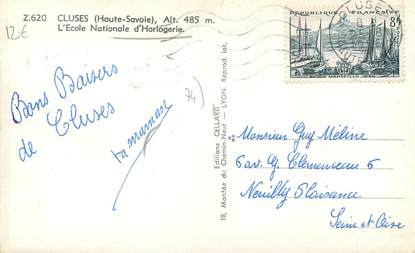 Z.620
CLUSES (Haute-Savoie), Alt. 485 m.
L'Ecole Nationale d'Horlogerie.
12€
REPUBLIQUE FRANÇAISE
8F
MARSEILLE
Bons Baisers
de Cluses
ta maman
74)
Editions CELLARD
18, Montée du Chemin-Neuf - LYON. Reprod. int.
Monsieur Guy Méline
6 av. G. Clemenceau 6
Neuilly Plaisance
Seine et Oise